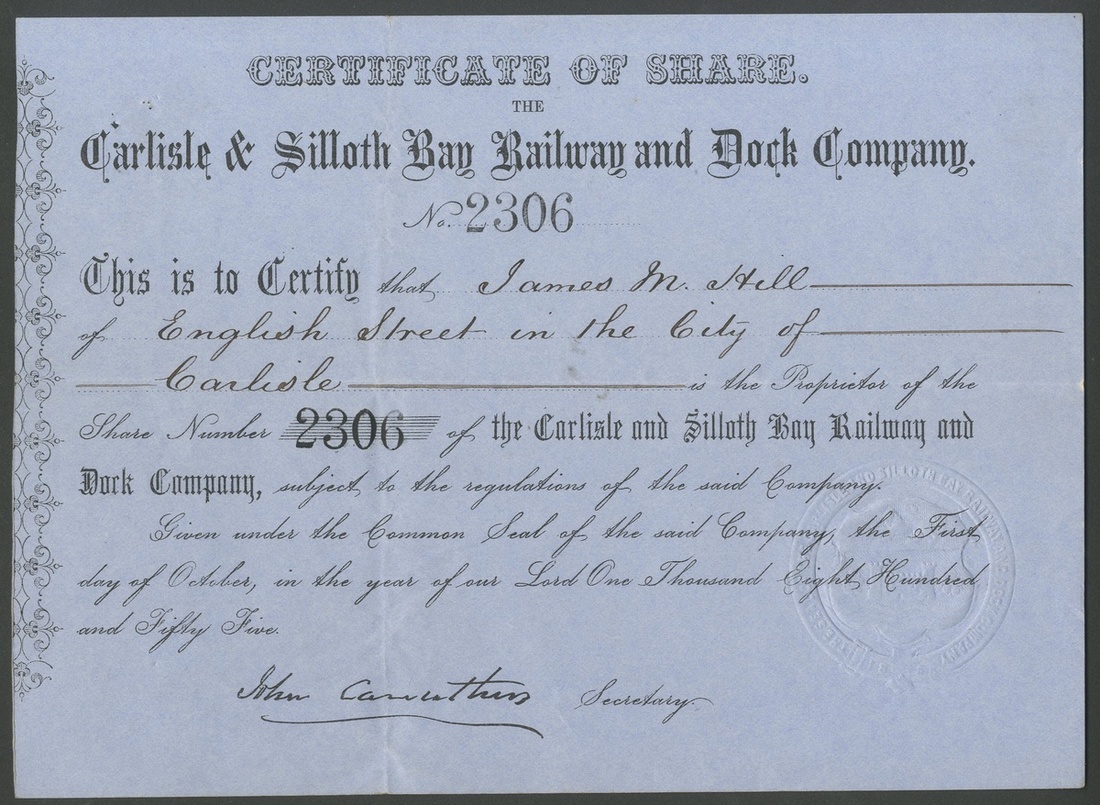 CERTIFICATE OF SHARE.
THE
Carlisle & Silloth Bay Railway and Dock Company.
No. 2306
This is to Certify that James M. Hill
of English Street in the City of
Carlisle is the Proprietor of the
Share Number 2306 of the Carlisle and Silloth Bay Railway and
Dock Company, subject to the regulations of the said Company.
Given under the Common Seal of the said Company, the First
day of October, in the year of our Lord One Thousand Eight Hundred
and Fifty Five.
John Carruthers Secretary.
AND SILLOTH BAY RAILWAY AND DOCK COMPANY